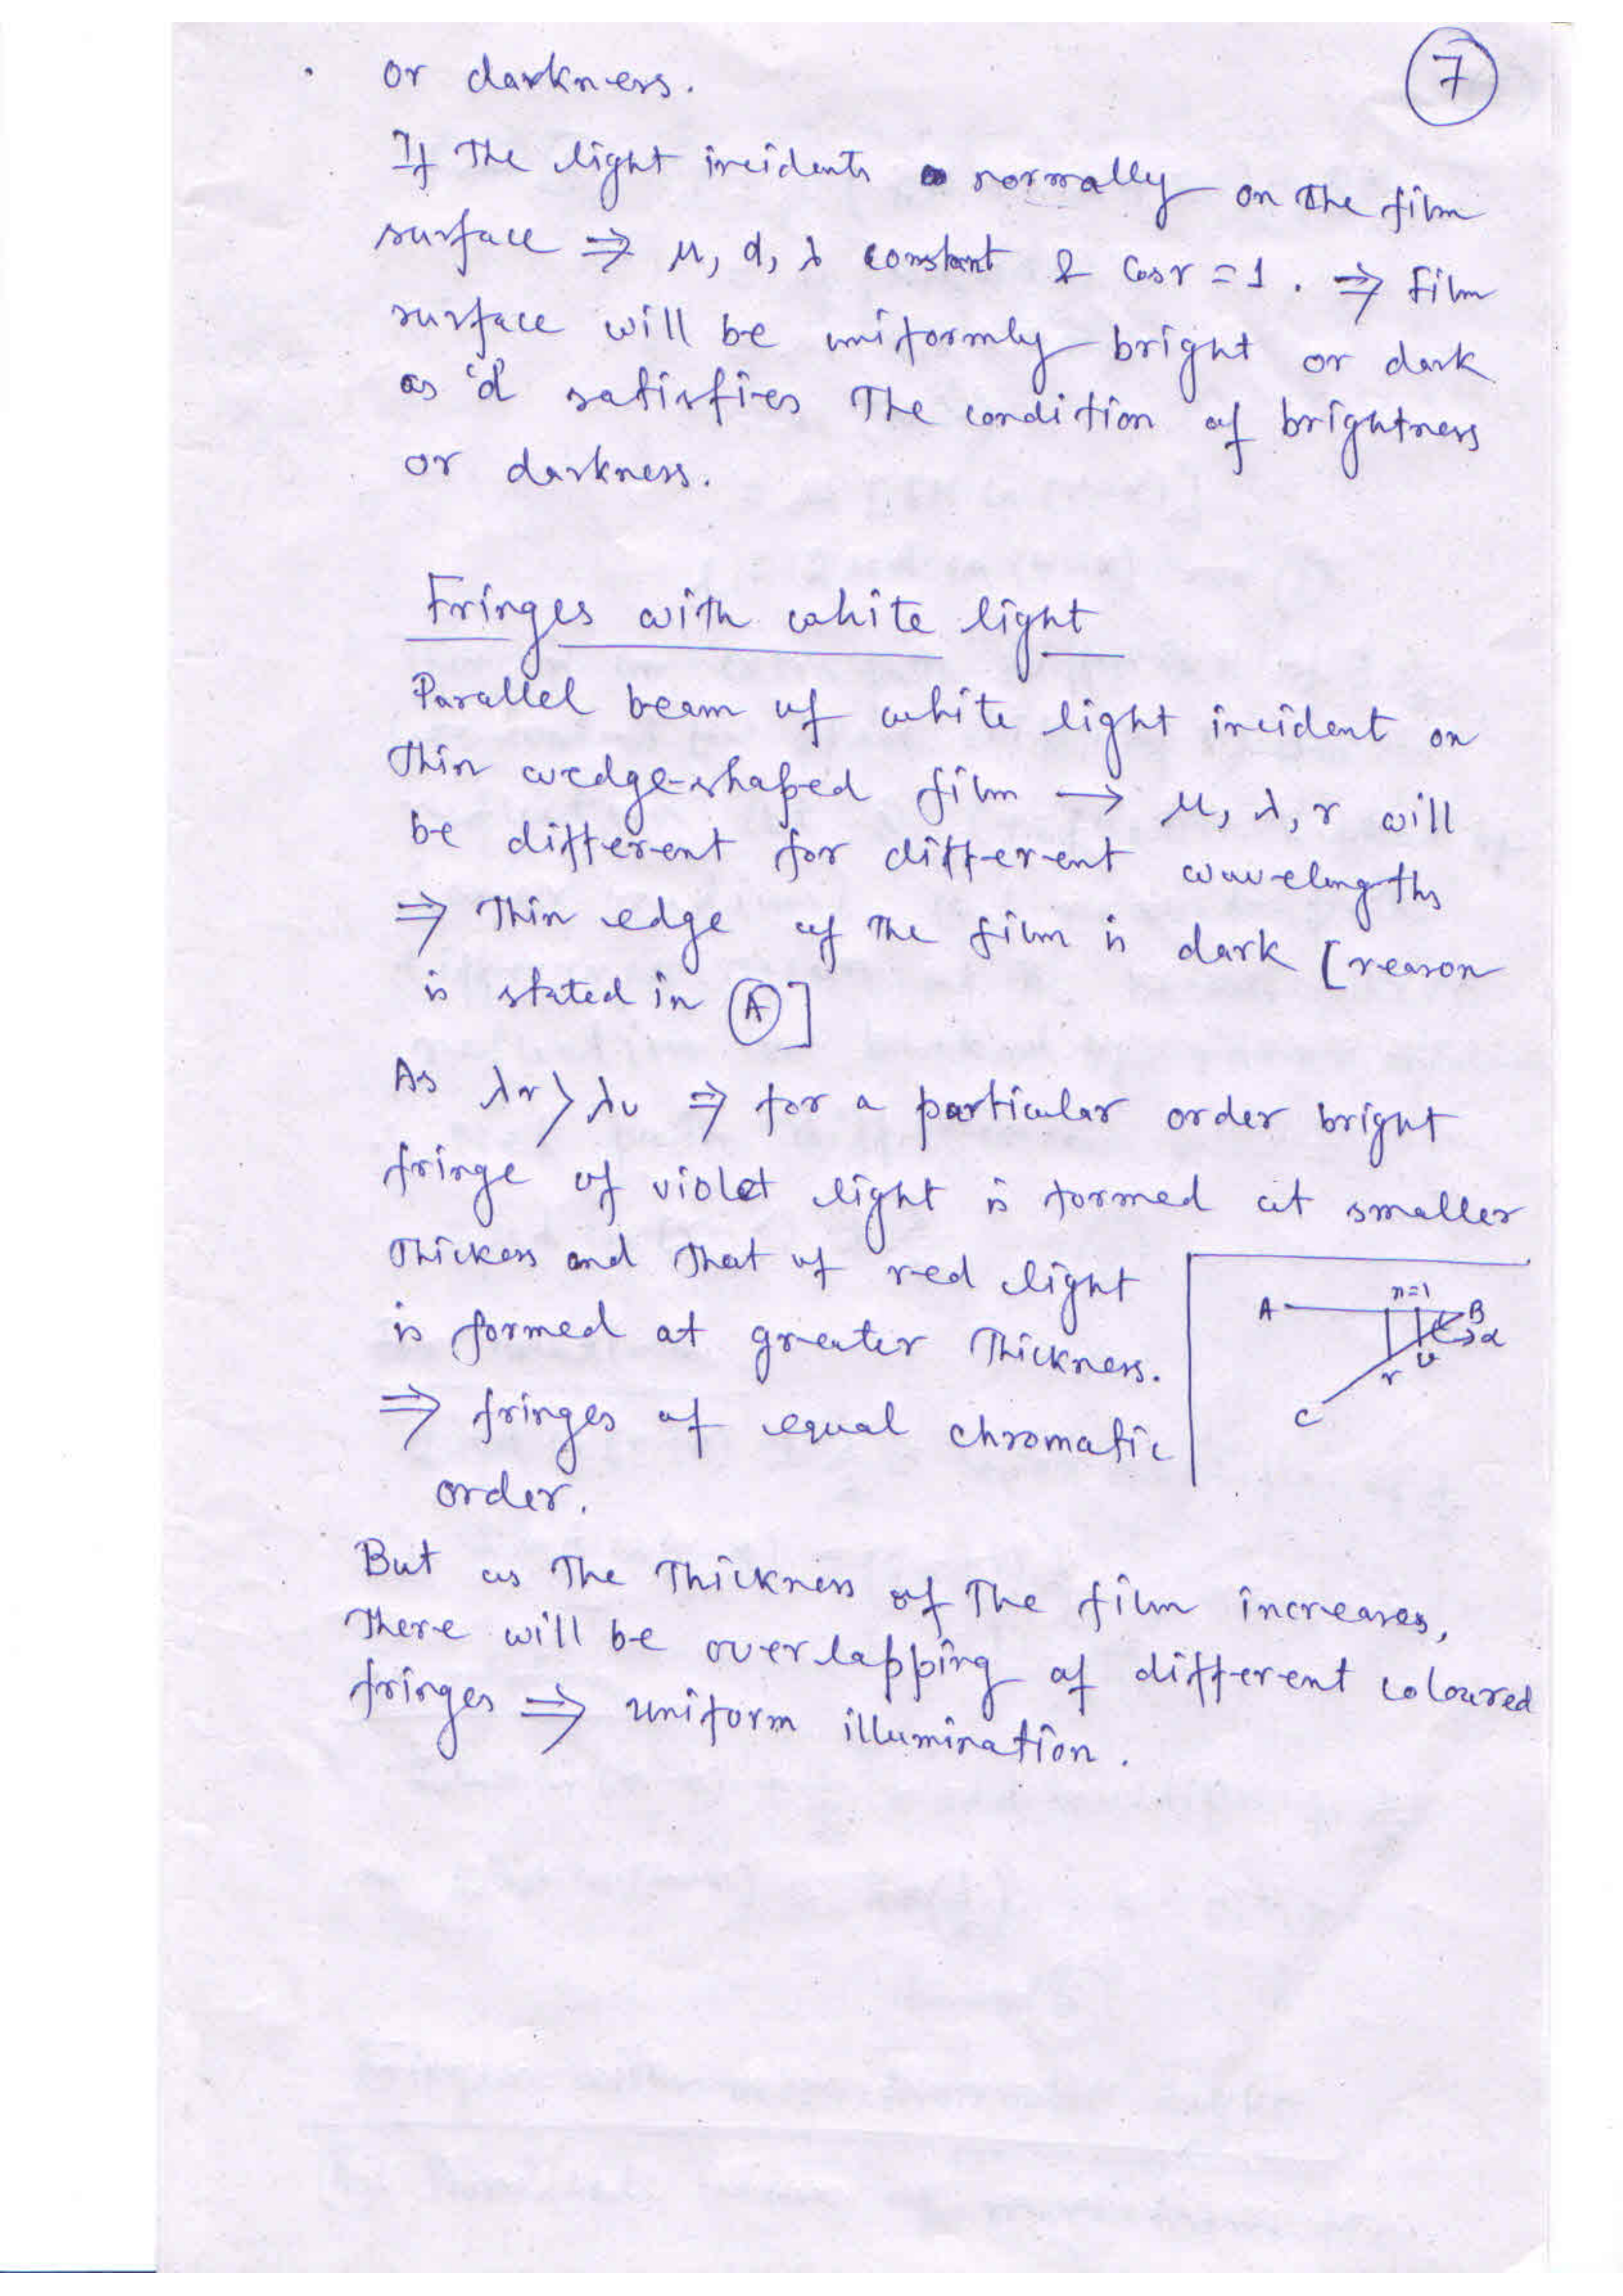 7
or darkness.
If The light incidents normally on the film
surface ⇒ μ, d, λ constant & Cos r = 1 . ⇒ Film
surface will be uniformly bright or dark
as 'd' satisfies The condition of brightness
or darkness.
Fringes with white light
Parallel beam of white light incident on
Thin wedge-shaped film → μ, λ, r will
be different for different wavelengths
⇒ Thin edge of the film is dark [reason
is stated in A]
As λr > λv ⇒ for a particular order bright
fringe of violet light is formed at smaller
Thickess and that of red light
is formed at greater Thickness.
⇒ fringes of equal chromatic
order.
n=1
A B
α
r v
C
But as The Thickness of The film increases,
There will be overlapping of different coloured
fringes ⇒ uniform illumination.